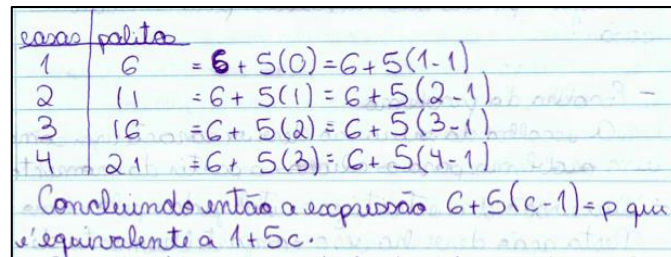 casas palitos
1 6 = 6 + 5(0) = 6 + 5(1-1)
2 11 = 6 + 5(1) = 6 + 5(2-1)
3 16 = 6 + 5(2) = 6 + 5(3-1)
4 21 = 6 + 5(3) = 6 + 5(4-1)
Concluindo então a expressão 6+5(c-1)=p que
é equivalente a 1+5c.